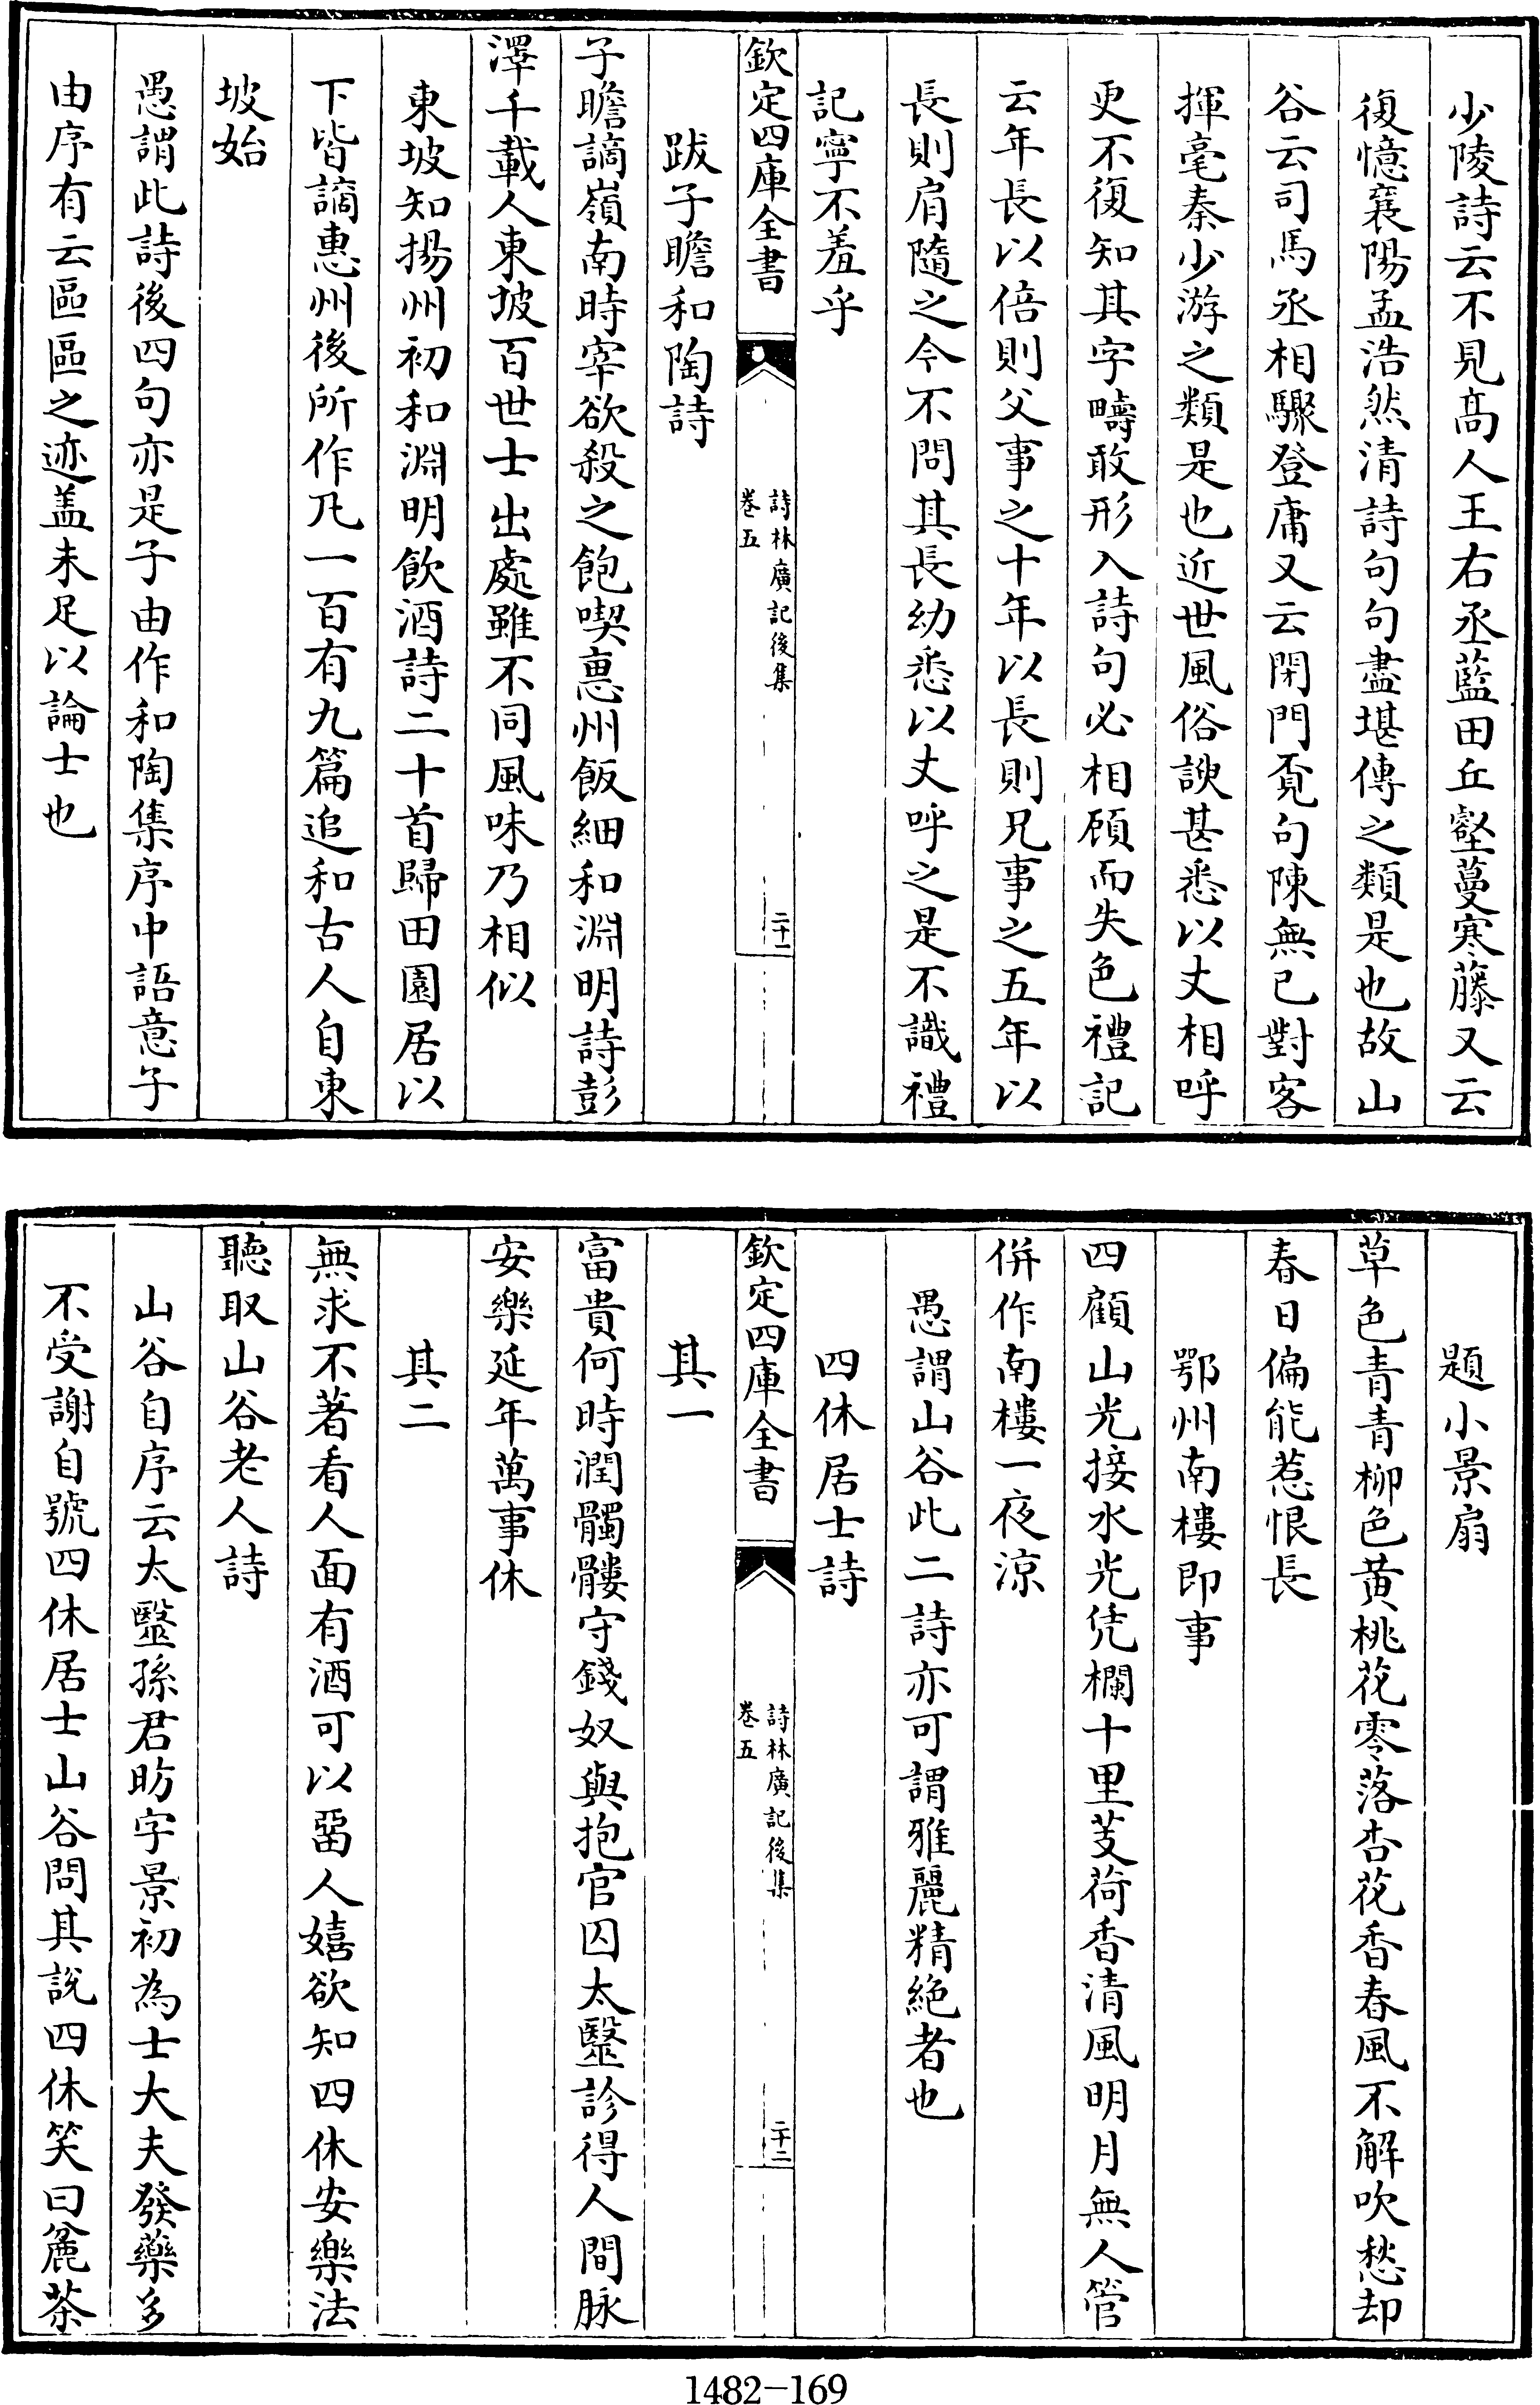 少陵詩云不見髙人王右丞藍田丘壑蔓寒藤又云
復憶襄陽孟浩然清詩句句盡堪傳之類是也故山
谷云司馬丞相驟登庸又云閉門覔句陳無已對客
揮毫秦少游之類是也近世風俗諛甚悉以丈相呼
更不復知其字疇敢形入詩句必相顧而失色禮記
云年長以倍則父事之十年以長則兄事之五年以
長則肩隨之今不問其長幼悉以丈呼之是不識禮
記寧不羞乎
欽定四庫全書
詩林廣記後集
卷五
二十一
跋子瞻和陶詩
子瞻謫嶺南時宰欲殺之飽喫惠州飯細和淵明詩彭
澤千載人東坡百世士出處雖不同風味乃相似
東坡知揚州初和淵明飲酒詩二十首歸田園居以
下皆謫惠州後所作凡一百有九篇追和古人自東
坡始
愚謂此詩後四句亦是子由作和陶集序中語意子
由序有云區區之迹盖未足以論士也
題小景扇
草色青青柳色黄桃花零落杏花香春風不解吹愁却
春日偏能惹恨長
鄂州南樓即事
四顧山光接水光凭欄十里芰荷香清風明月無人管
併作南樓一夜凉
愚謂山谷此二詩亦可謂雅麗精絶者也
四休居士詩
欽定四庫全書
詩林廣記後集
卷五
二十二
其一
富貴何時潤髑髏守錢奴與抱官囚太毉診得人間脉
安樂延年萬事休
其二
無求不著看人面有酒可以留人嬉欲知四休安樂法
聽取山谷老人詩
山谷自序云太毉孫君昉字景初為士大夫發藥多
不受謝自號四休居士山谷問其說四休笑曰麄茶
1482-169